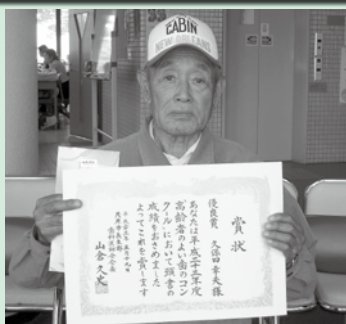 CABIN
NEW ORLEANS
賞状
優良賞 久保田幸夫様
あなたは平成二十五年度
高齢者のよい歯のコン
クールにおいて頭書の
成績をおさめました
よってこれを賞します
山倉久史